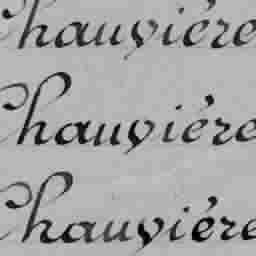 Chauvière
Chauvière
Chauvière